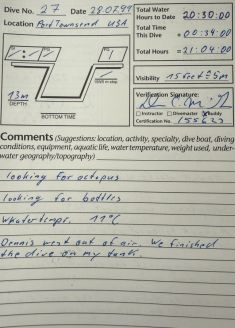 Dive No. 27 Date 28.07.99
Location Port Townsend USA
Total Water
Hours to Date 20:30:00
Total Time
This Dive + 00:34:00
Total Hours = 21:04:00
PG
PG
13m
DEPTH
BOTTOM TIME
Visibility 15 feet ≅ 5m
Verification Signature:
Instructor Divemaster Buddy
Certification No. 155623
Comments (Suggestions: location, activity, specialty, dive boat, diving
conditions, equipment, aquatic life, water temperature, weight used, under-
water geography/topography)
looking for octopus
looking for bottles
Watertemp. 11°C
Dennis went out of air. We finished
the dive on my tank.